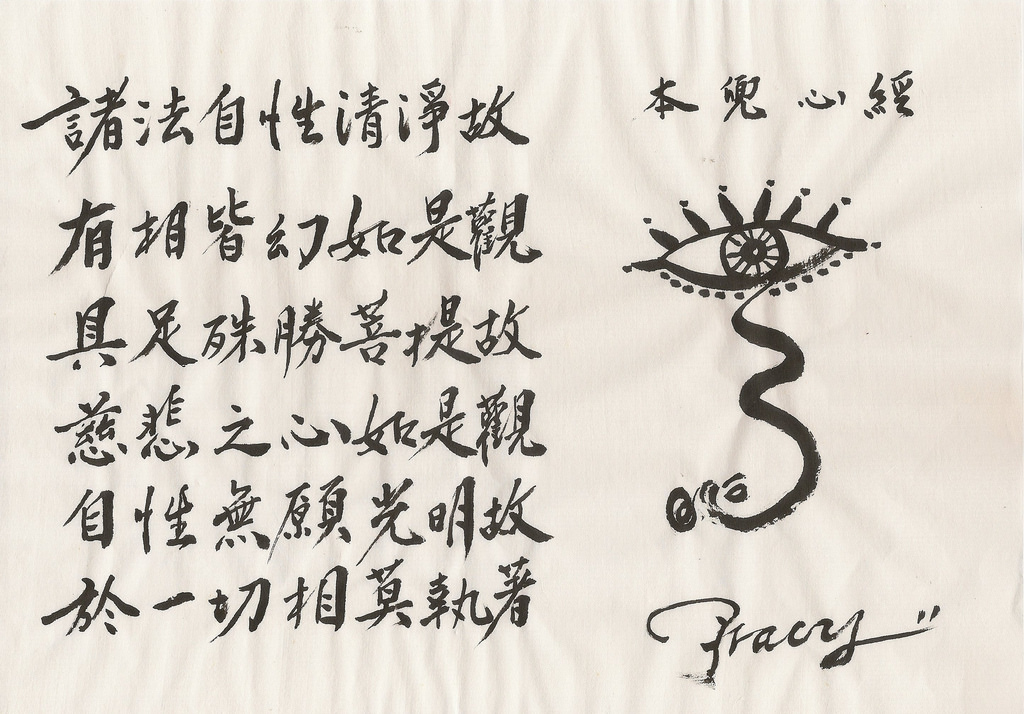 本兜心經
諸法自性清淨故
有相皆幻如是觀
具足殊勝菩提故
慈悲之心如是觀
自性無願光明故
於一切相莫執著
Tracy